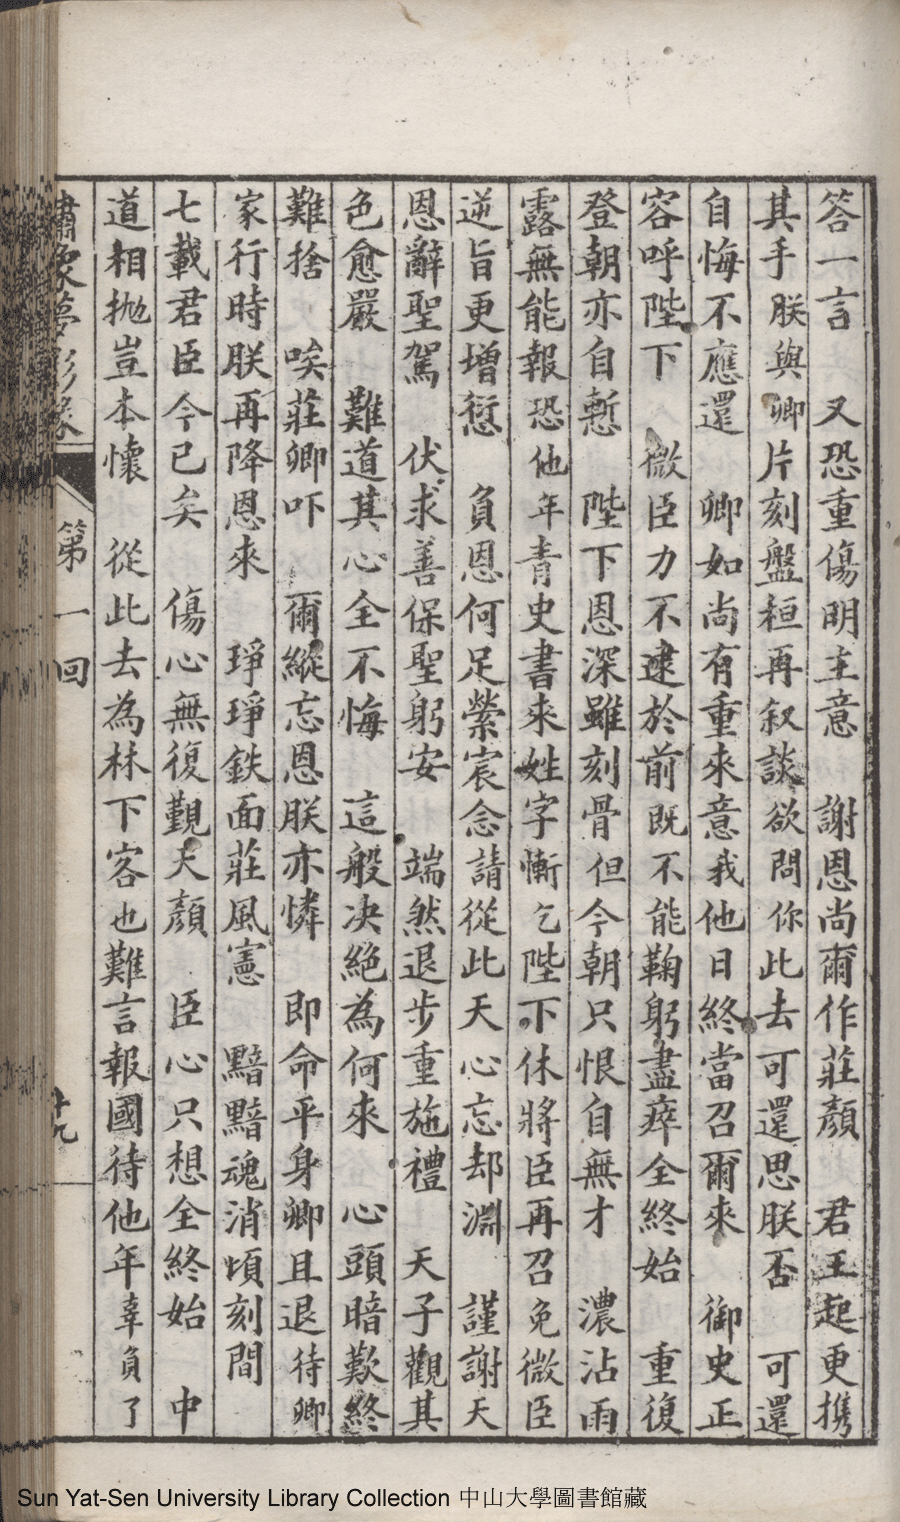 答一言　又恐重傷明主意　謝恩尚爾作莊顏　君王起更携
其手　朕與卿片刻盤桓再叙談　欲問你此去可還思朕否　可還
自悔不應還　卿如尚有重來意　我他日終當召爾來　御史正
容呼陛下　微臣力不逮於前　既不能鞠躬盡瘁全終始　重復
登朝亦自慙　陛下恩深雖刻骨　但今朝只恨自無才　濃沾雨
露無能報　恐他年青史書來姓字慚　乞陛下休將臣再召　免微臣
逆旨更增愆　負恩何足縈宸念　請從此天心忘却淵　謹謝天
恩辭聖駕　伏求善保聖躬安　端然退步重施禮　天子觀其
色愈嚴　難道其心全不悔　這般决絕為何來　心頭暗歎終
難捨　唉莊卿吓　爾縱忘恩朕亦憐　即命平身卿且退　待卿
家行時朕再降恩來　琤琤鉄面莊風憲　黯黯魂消頃刻間
七載君臣今已矣　傷心無復覲天顏　臣心只想全終始　中
道相拋豈本懷　從此去為林下客　也難言報國待他年　辜負了
第一回
十九
Sun Yat-Sen University Library Collection 中山大學圖書館藏